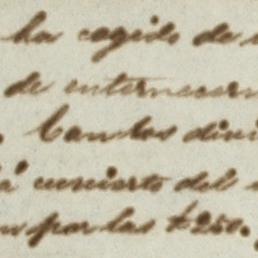 ha cogido de
de enternecern
Cambos divi
cuncierto del
por las $250.